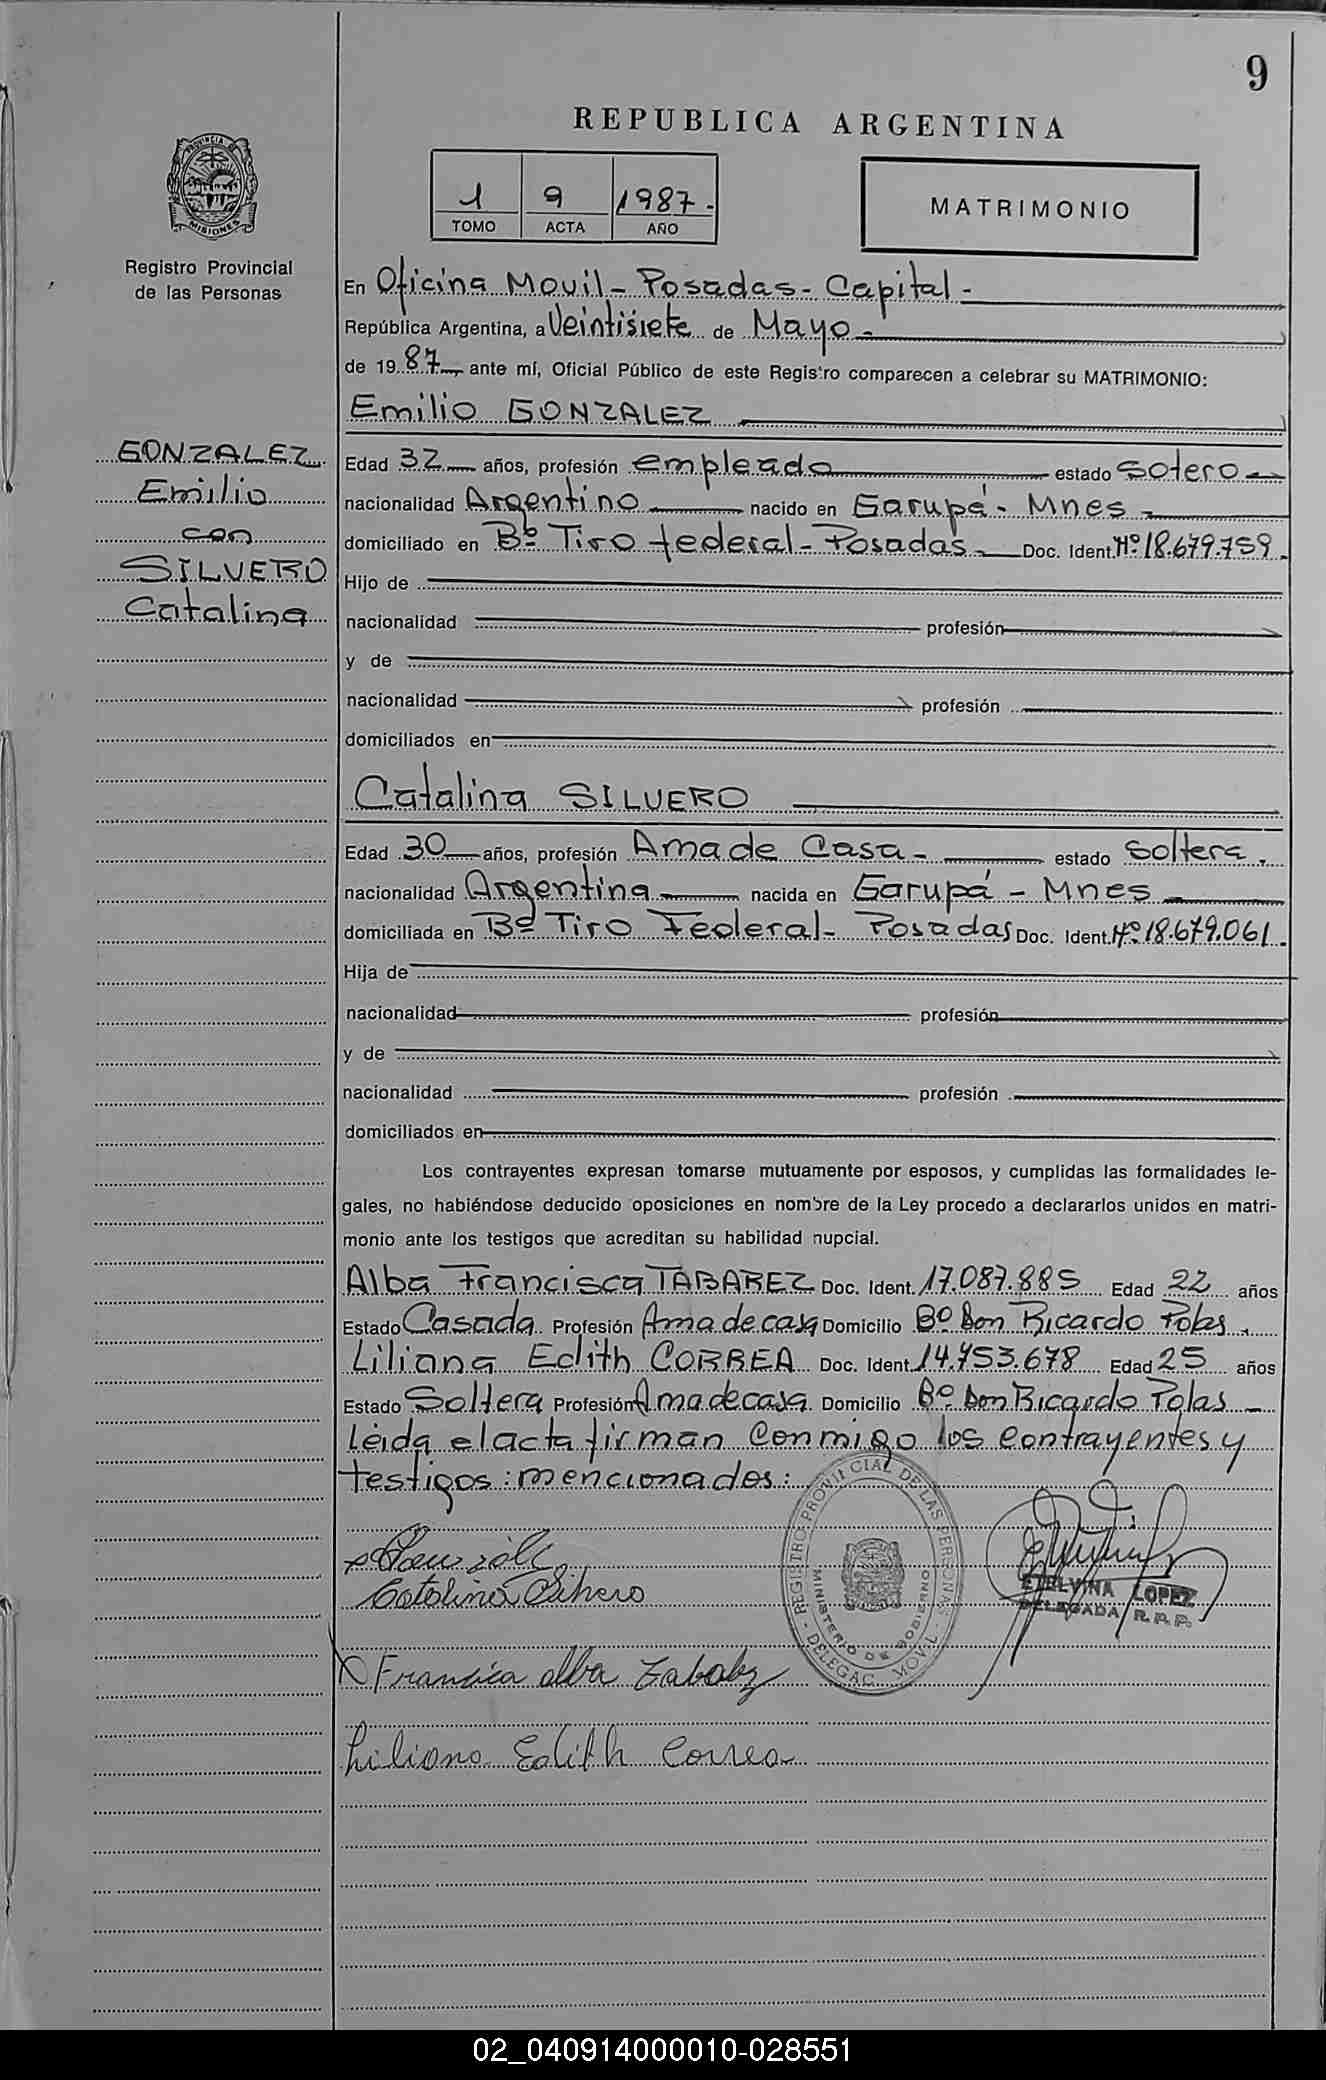 9
REPUBLICA ARGENTINA
PROVINCIA DE
MISIONES
Registro Provincial
de las Personas
1 9 1987.
TOMO ACTA AÑO
MATRIMONIO
En Oficina Movil - Posadas - Capital -
República Argentina, a Veintisiete de Mayo -
de 1987, ante mí, Oficial Público de este Registro comparecen a celebrar su MATRIMONIO:
Emilio GONZALEZ
GONZALEZ
Emilio
con
SILVERO
Catalina
Edad 32 años, profesión empleado estado Sotero
nacionalidad Argentino nacido en Garupá - Mnes -
domiciliado en Bº Tiro federal - Posadas - Doc. Ident. Nº 18.679.759.
Hijo de
nacionalidad profesión
y de
nacionalidad profesión
domiciliados en
Catalina SILVERO
Edad 30 años, profesión Ama de Casa - estado Soltera.
nacionalidad Argentina nacida en Garupá - Mnes -
domiciliada en Bº Tiro Federal - Posadas Doc. Ident. Nº 18.679.061.
Hija de
nacionalidad profesión
y de
nacionalidad profesión
domiciliados en
Los contrayentes expresan tomarse mutuamente por esposos, y cumplidas las formalidades le-
gales, no habiéndose deducido oposiciones en nombre de la Ley procedo a declararlos unidos en matri-
monio ante los testigos que acreditan su habilidad nupcial.
Alba Francisca TABAREZ Doc. Ident. 17.087.885 Edad 22 años
Estado Casada Profesión Ama de casa Domicilio Bº Don Ricardo Polas.
Liliana Edith CORREA Doc. Ident. 14.753.678 Edad 25 años
Estado Soltera Profesión Ama de casa Domicilio Bº Don Ricardo Polas -
Leida el acta firman conmigo los contrayentes y
testigos: mencionados:
REGISTRO PROVINCIAL DE LAS PERSONAS
MINISTERIO DE GOBIERNO
DELEGAC. MOVIL
Catalina Silvero
ETELVINA LOPEZ
DELEGADA R.P.P.
Francisca Alba
Liliana Edith Correa
02_040914000010-028551